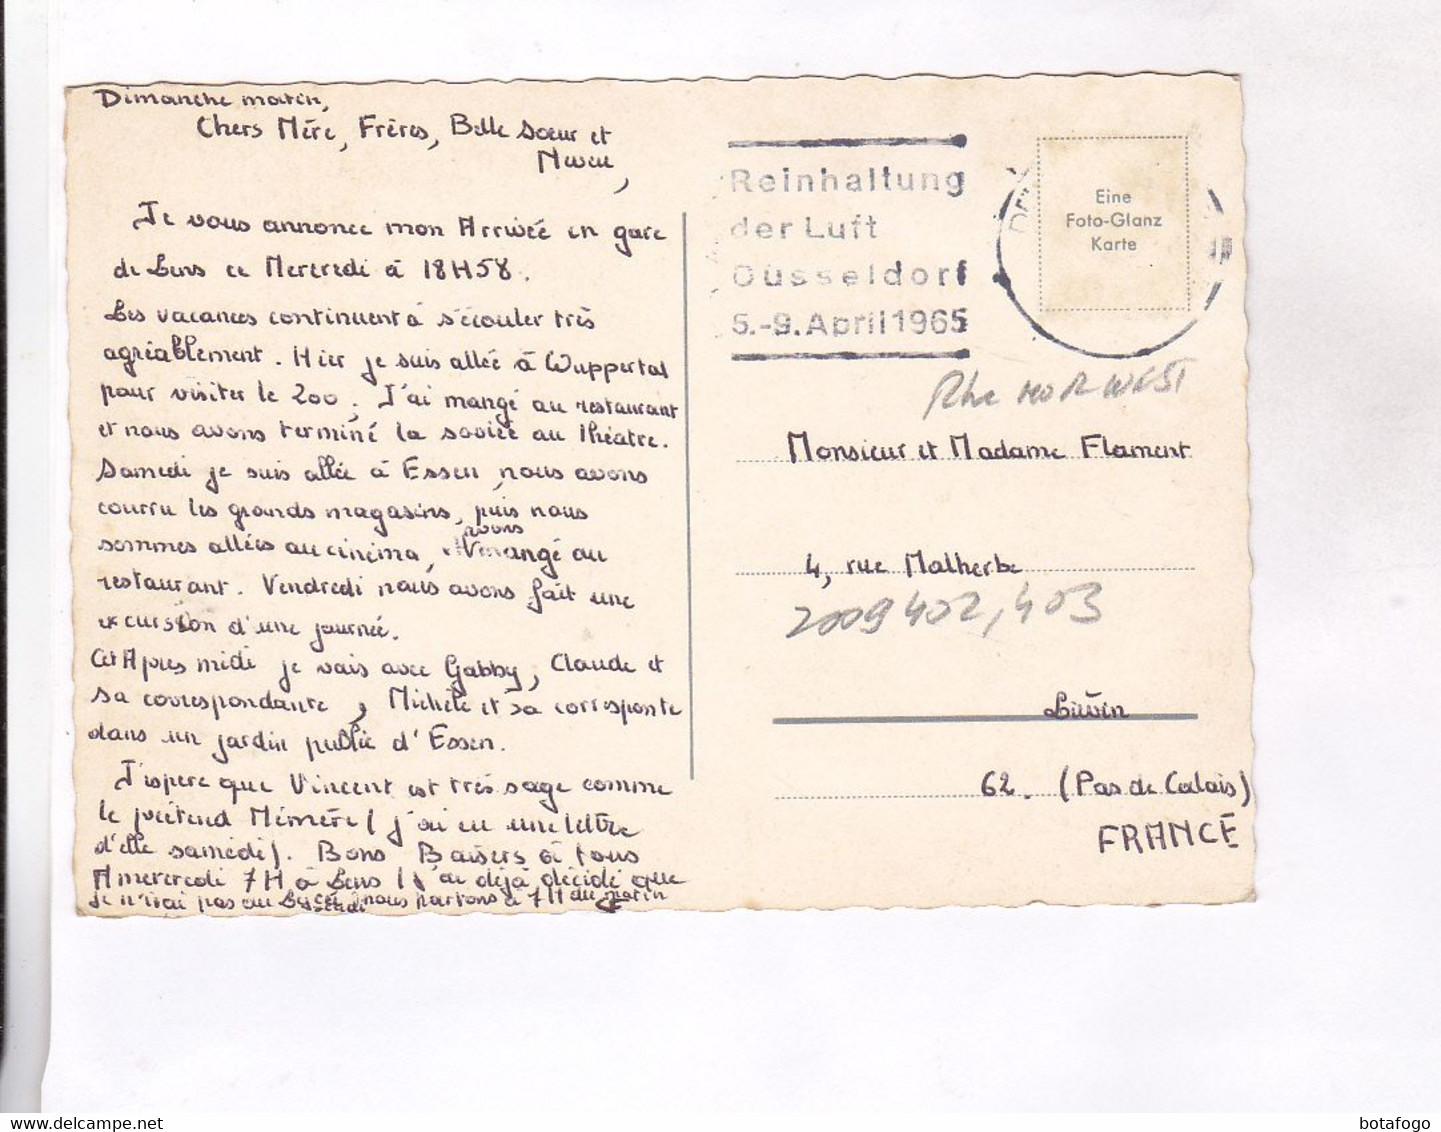 Dimanche matin,
Chers Mère, Frères, Belle Soeur et
Neveu,
Je vous annonce mon Arrivée en gare
de Lens ce Mercredi à 18H58.
Les vacances continuent à s'écouler très
agréablement. Hier je suis allée à Wuppertal
pour visiter le zoo, J'ai mangé au restaurant
et nous avons terminé la soirée au théatre.
Samedi je suis allée à Essen, nous avons
courru les grands magasins, puis nous
avons
sommes allées au cinéma, mangé au
restaurant. Vendredi nous avons fait une
excursion d'une journée.
Cet Après midi je vais avec Gabby, Claude et
sa correspondante, Michèle et sa corresponte
dans un jardin public d'Essen.
J'ispère que Vincent est très sage comme
le prétend Mémère (j'ai eu une lettre
d'elle samedi). Bons Baisers à tous
A mercredi 7H à Lens (J'ai déjà décidé que
je n'irai pas au Lycée, nous partons à 7H du matin
Reinhaltung
der Luft
Düsseldorf
5.-9. April 1965
Eine
Foto-Glanz
Karte
Rhe NORWEST
Monsieur et Madame Flament
4, rue Malherbe
2009402,403
Liévin
62. (Pas de Calais)
FRANCE
delcampe.net
botafogo